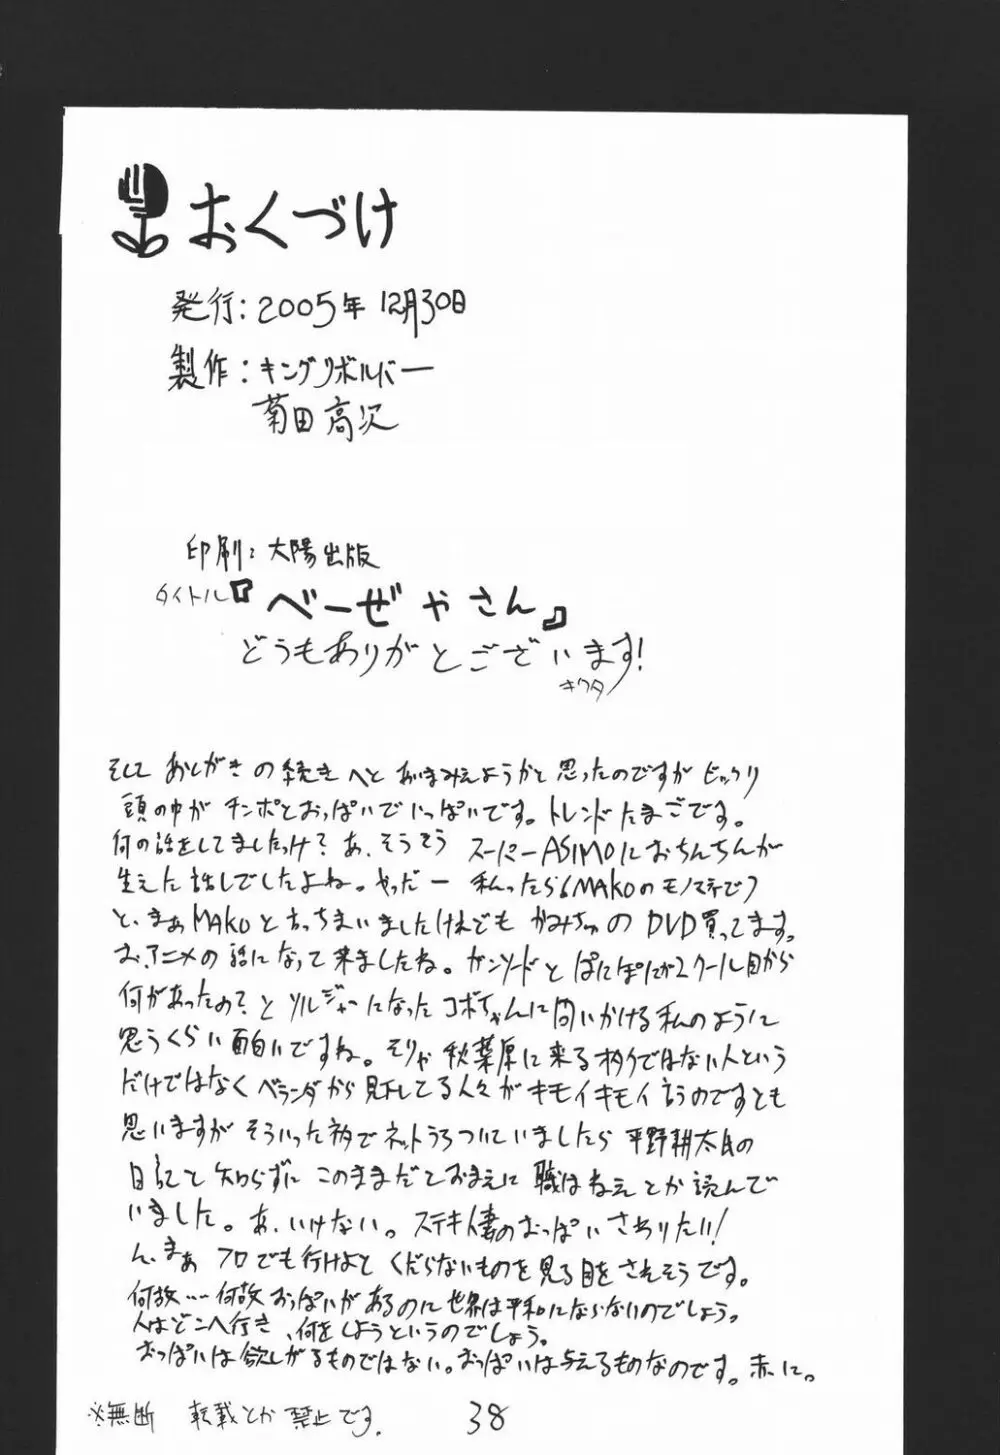 おくづけ
発行：2005年12月30日
製作：キングリボルバー
菊田高次
印刷：大陽出版
タイトル『べーぜやさん』
どうもありがとございます！
キクタ
そして あとがきの続きへと あいまみえようかと思ったのですが ビックリ
頭の中が チンポとおっぱいでいっぱいです。トレンドたまごです。
何の話をしてましたっけ？ あ、そうそう スーパーASIMOにおちんちんが
生えた話しでしたよね。やっだー 私ったら MAKOのモノマネで
と、まぁMAKOと言っちまいましたけれども かみちゅのDVD買ってます。
お、アニメの話になって来ましたね。ガンソードとぱにぽにが2クール目から
何があったの？と ソルジャーになったコボちゃんに問いかける私のように
思うくらい面白いですね。そりゃ秋葉原に来るオタクではない人という
だけではなくベランダから見下してる人々がキモイキモイ言うのですとも
思いますが そういった衲でネットうろついていましたら 平野耕太氏の
日記と知らずに このままだとおまえに職はねえとか読んで
いました。あ、いけない。ステキ人妻のおっぱいさわりたい！
ん、まぁ プロでも行けよと くだらないものを見る目をされそうです。
何故…何故おっぱいがあるのに世界は平和にならないのでしょう。
人はどこへ行き、何をしようというのでしょう。
おっぱいは欲しがるものではない。おっぱいは与えるものなのです。赤に。
※無断 転載とか禁止です。
38